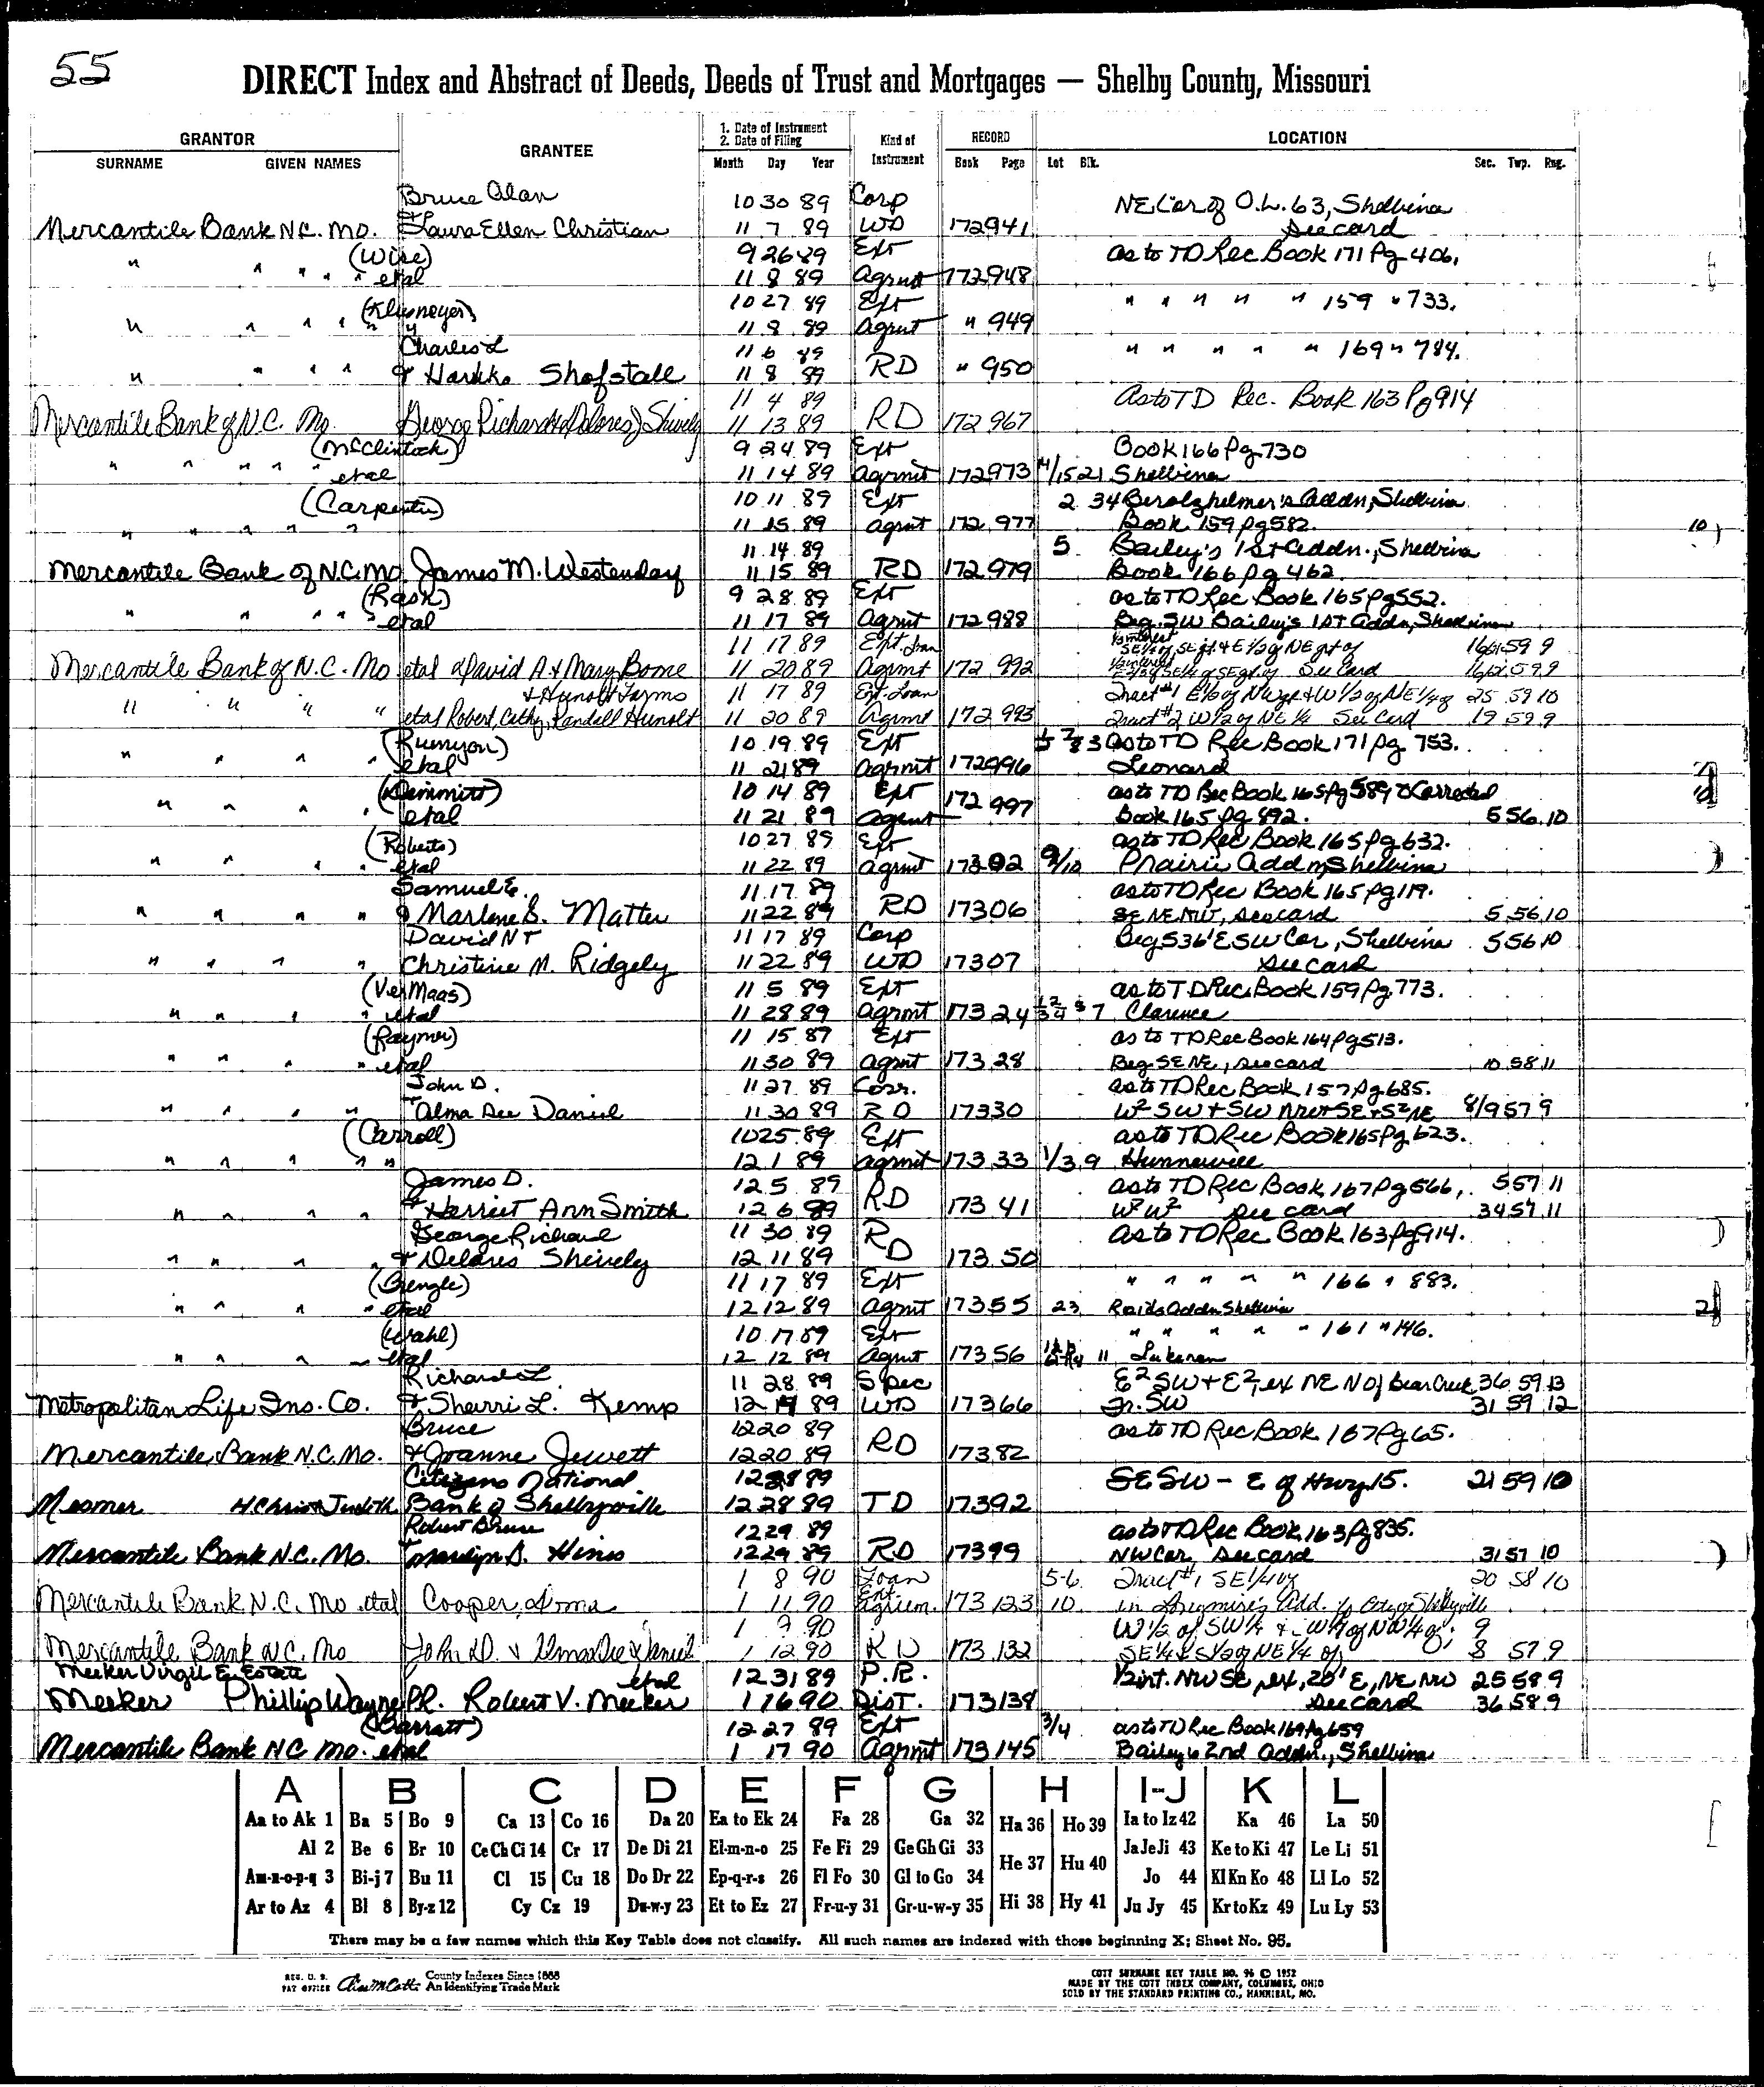 55
DIRECT Index and Abstract of Deeds, Deeds of Trust and Mortgages — Shelby County, Missouri
GRANTOR GRANTEE 1. Date of Instrument 2. Date of Filing Kind of Instrument RECORD LOCATION
SURNAME GIVEN NAMES Month Day Year Book Page Lot Blk. Sec. Twp. Rng.
Bruce Alan 10 30 89 Corp NE Cor of O.L. 63, Shelbina
Mercantile Bank N.C. Mo. & Laura Ellen Christian 11 7 89 WD 172 941 See card
(Wise) 9 26 89 Ext as to TD Rec Book 171 Pg 406.
" " " " " etal 11 8 89 Agrmt 172 948
10 27 89 Ext " " " " " 159 " 733.
" " " " " " 11 8 89 Agrmt " 949
Charles L 11 6 89 " " " " " 169 " 784.
" " " " & Shofstall 11 8 89 RD " 950
11 4 89 As to TD Rec. Book 163 Pg 914
Mercantile Bank of N.C. Mo. George Richard & Delores J Shively 11 13 89 RD 172 967
(McClintock) 9 24 89 Ext Book 166 Pg 730
" " " " " etal 11 14 89 Agrmt 172 973 15 21 Shelbina
(Carpenter) 10 11 89 Ext 2 34 Berolzheimer's Addn, Shelbina
" " " " " 11 15 89 Agrmt 172 977 Book 159 Pg 582.
11 14 89 5 Bailey's 1st Addn., Shelbina
Mercantile Bank of N.C. Mo James M. Westenday 11 15 89 RD 172 979 Book 166 Pg 462.
(Rash) 9 28 89 Ext as to TD Rec Book 165 Pg 552.
" " " " " etal 11 17 89 Agrmt 172 988 Beg. SW Bailey's 1st Addn, Shelbina
11 17 89 Ext. Loan SE 1/4 of SE qt & E 1/2 of NE qrt of 59 9
Mercantile Bank of N.C. Mo etal & David A & Mary Bome 11 20 89 Agrmt 172 992 SE 1/4 of SE qt of See Card 59 9
& Hunolt Farms 11 17 89 Ext. Loan Tract #1 E 1/2 of NW qr & W 1/2 of NE 1/4 of 25 59 10
" " " " etal Robert, Cathy, Randall Hunolt 11 20 89 Agrmt 172 993 Tract #2 W 1/2 of NE 1/4 See Card 19 59 9
(Runyon) 10 19 89 Ext 3 as to TD Rec Book 171 Pg 753.
" " " " etal 11 21 89 Agrmt 172 996 Leonard
(Dimmitt) 10 14 89 Ext as to TD Rec Book 165 Pg 589 & Corrected
" " " " etal 11 21 89 Agrmt 172 997 Book 165 Pg 892. 5 56 10
(Roberts) 10 27 89 Ext as to TD Rec Book 165 Pg 632.
" " " " etal 11 22 89 Agrmt 173 02 9/10 Prairie Addn, Shelbina
Samuel E. 11 17 89 as to TD Rec Book 165 Pg 119.
" " " " & Marlene S. Matter 11 22 89 RD 173 06 SE NE NW, see card 5 56 10
David N & 11 17 89 Corp Beg 536' E SW Cor, Shelbina 5 56 10
" " " " Christine M. Ridgely 11 22 89 WD 173 07 See card
(VerMaas) 11 5 89 Ext as to TD Rec Book 159 Pg 773.
" " " " etal 11 28 89 Agrmt 173 24 7 Clarence
(Raymer) 11 15 89 Ext as to TD Rec Book 164 Pg 513.
" " " " etal 11 30 89 Agrmt 173 28 Beg SE NE, see card 10 58 11
John D. 11 27 89 Corr. as to TD Rec Book 157 Pg 685.
" " " " & Alma Dee Daniel 11 30 89 RD 173 30 W² SW & SW NW & SE & S² NE 8/9 57 9
(Carroll) 10 25 89 Ext as to TD Rec Book 165 Pg 623.
" " " " " 12 1 89 Agrmt 173 33 1/3 9 Hunnewell
James D. 12 5 89 as to TD Rec Book 167 Pg 566, 5 57 11
" " " " & Harriet Ann Smith 12 6 89 RD 173 41 W² W² See card 34 57 11
George Richard 11 30 89 RD as to TD Rec Book 163 Pg 914.
" " " " & Delores Shively 12 11 89 173 50
(Gengle) 11 17 89 Ext " " " " " 166 " 883.
" " " " etal 12 12 89 Agrmt 173 55 23 Reids Addn Shelbina
(Wahl) 10 17 89 Ext " " " " " 161 " 146.
" " " " etal 12 12 89 Agrmt 173 56 11 Lakenan
Richard L. 11 28 89 Spec E² SW & E², ex NE N of Bear Creek 36 59 13
Metropolitan Life Ins. Co. & Sherri L. Kemp 12 19 89 WD 173 66 Fr. SW 31 59 12
Bruce 12 20 89 as to TD Rec Book 167 Pg 65.
Mercantile Bank N.C. Mo. & Joanne Jewett 12 20 89 RD 173 82
Citizens National 12 28 89 SE SW - E of Hwy 15. 21 59 10
Mesmer H. Chris & Judith Bank of Shelbyville 12 28 89 TD 173 92
Robert Bruce 12 29 89 as to TD Rec Book 163 Pg 835.
Mercantile Bank N.C. Mo. & Marilyn S. Hines 12 29 89 RD 173 99 NW Cor, See card 31 57 10
1 8 90 Loan 5-6 Tract #1 SE 1/4 of 20 58 10
Mercantile Bank N.C. Mo etal Cooper, 1 11 90 Ext. Agreem. 173 123 10 in Longmire's Add. to City of Shelbyville
1 9 90 W 1/2 of SW 1/4 & W 1/2 of NW 1/4 of 9
Mercantile Bank N.C. Mo John D. & Alma Dee Daniel 1 12 90 RD 173 132 SE 1/4 & S 1/2 of NE 1/4 of 8 57 9
Meeker Virgil E. Estate etal 12 31 89 P.R. 1/2 int. NW SE, ex. 20' E, NE, NW 25 58 9
Meeker Phillip Wayne PR. Robert V. Meeker 1 16 90 Dist. 173 138 See Card 36 58 9
(Barratt) 12 27 89 Ext 3/4 as to TD Rec Book 169 Pg 659
Mercantile Bank N.C. Mo. etal 1 17 90 Agrmt 173 145 Bailey's 2nd Addn., Shelbina
A B C D E F G H I-J K L
Aa to Ak 1 Ba 5 Bo 9 Ca 13 Co 16 Da 20 Ea to Ek 24 Fa 28 Ga 32 Ha 36 Ho 39 Ia to Iz 42 Ka 46 La 50
Al 2 Be 6 Br 10 Ce Ch Ci 14 Cr 17 De Di 21 El-m-n-o 25 Fe Fi 29 Ge Gh Gi 33 He 37 Hu 40 Ja Je Ji 43 Ke to Ki 47 Le Li 51
Am-n-o-p-q 3 Bi-j 7 Bu 11 Cl 15 Cu 18 Do Dr 22 Ep-q-r-s 26 Fl Fo 30 Gl to Go 34 Jo 44 Kl Kn Ko 48 Ll Lo 52
Ar to Az 4 Bl 8 By-z 12 Cy Cz 19 Du-w-y 23 Et to Ez 27 Fr-u-y 31 Gr-u-w-y 35 Hi 38 Hy 41 Ju Jy 45 Kr to Kz 49 Lu Ly 53
There may be a few names which this Key Table does not classify. All such names are indexed with those beginning X; Sheet No. 95.
REG. U. S. PAT OFFICE County Indexes Since 1888 An Identifying Trade Mark
COTT SURNAME KEY TABLE NO. 96 © 1952
MADE BY THE COTT INDEX COMPANY, COLUMBUS, OHIO
SOLD BY THE STANDARD PRINTING CO., HANNIBAL, MO.